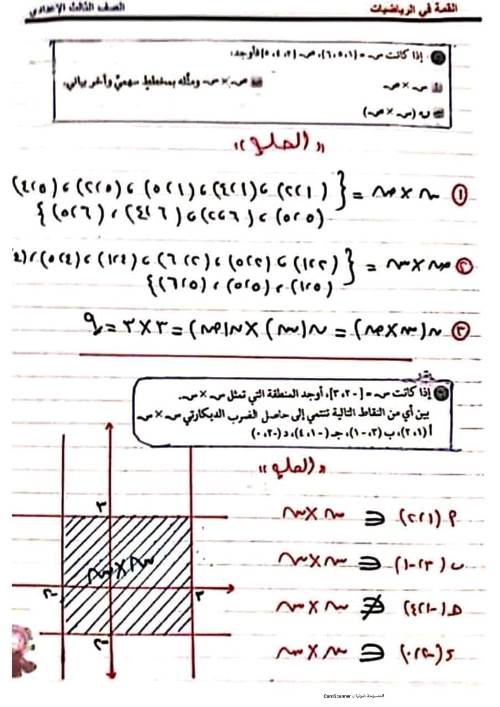 القمة في الرياضيات
الصف الثالث الإعدادي
إذا كانت س = {١، ٥، ٦}، ص = {٢، ٤، ٥} فأوجد:
س × ص
ص × س ومثله بمخطط سهمي وآخر بياني.
ن (س × ص)
«الحل»
① س × ص = {(١،٢)، (١،٤)، (١،٥)، (٥،٢)، (٥،٤)
(٥،٥)، (٦،٢)، (٦،٤)، (٦،٥)}
② ص × س = {(٢،١)، (٢،٥)، (٢،٦)، (٤،١)، (٤،٥)، (٤
(٥،١)، (٥،٥)، (٥،٦)}
③ ن(س×ص) = ن(س) × ن(ص) = ٣ × ٣ = ٩
إذا كانت س = [-٢، ٣]، أوجد المنطقة التي تمثل س × س.
بين أي من النقاط التالية تنتمي إلى حاصل الضرب الديكارتي س × س
أ (١، ٢)، ب (٣، -١)، جـ (-١، ٤)، د (-٢، ٠)
«الحل»
٣
س × س
-٢
٣
-٢
P (١،٢) ∈ س × س
ب (٣، -١) ∈ س × س
جـ (-١، ٤) ∉ س × س
د (-٢، ٠) ∈ س × س
الممسوحة ضوئيا بـ CamScanner